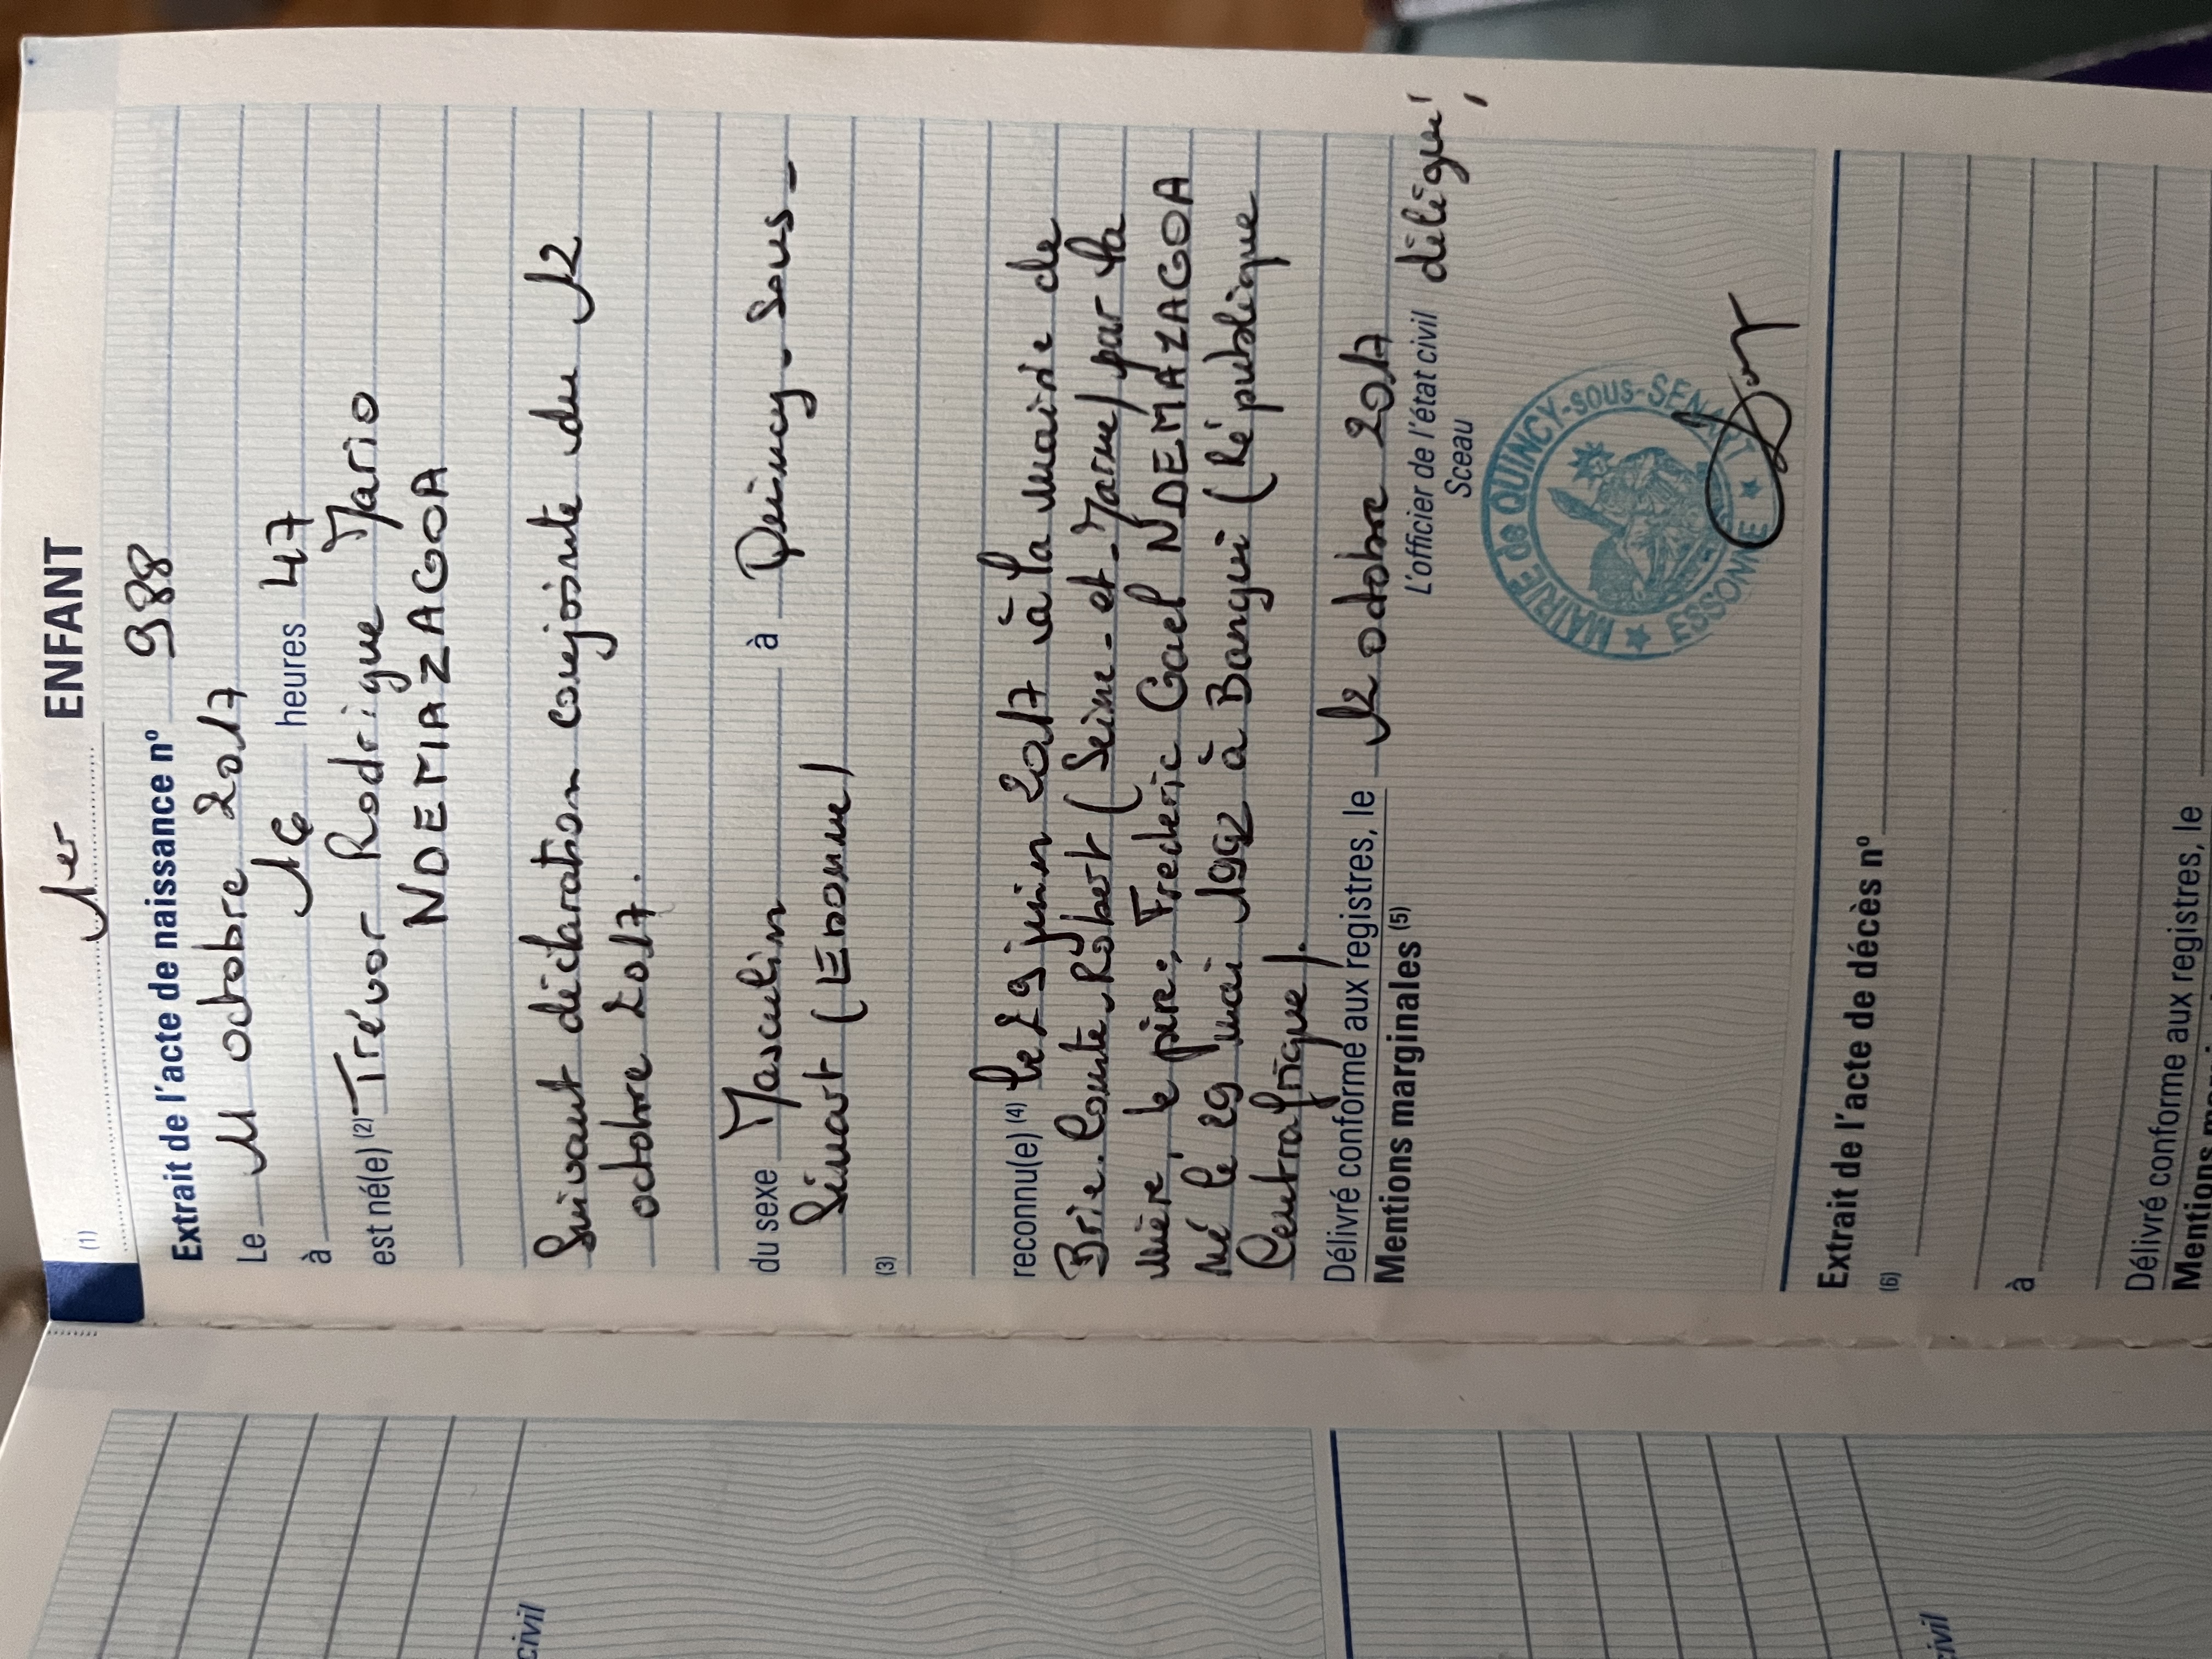 1er ENFANT
(1)
Extrait de l'acte de naissance nº 988
Le 11 octobre 2017
à 16 heures 47
est né(e) (2) Trévor Rodrigue Mario
NDEMAZAGOA
Suivant déclaration conjointe du 12
octobre 2017.
du sexe Masculin à Quincy-Sous-
Sénart (Essonne)
(3)
reconnu(e) (4) le 29 juin 2017 à la mairie de
Brie-Comte-Robert (Seine-et-Marne) par la
mère, le père: Frederic Gael NDEMAZAGOA
Né le 29 mai 1992 à Bangui (République
Centrafrique).
Délivré conforme aux registres, le 12 octobre 2017
Mentions marginales (5)
L'officier de l'état civil délégué,
Sceau
MAIRIE de QUINCY-sous-SENART
ESSONNE
Extrait de l'acte de décès nº
(6)
à
Délivré conforme aux registres, le
Mentions
civil
civil